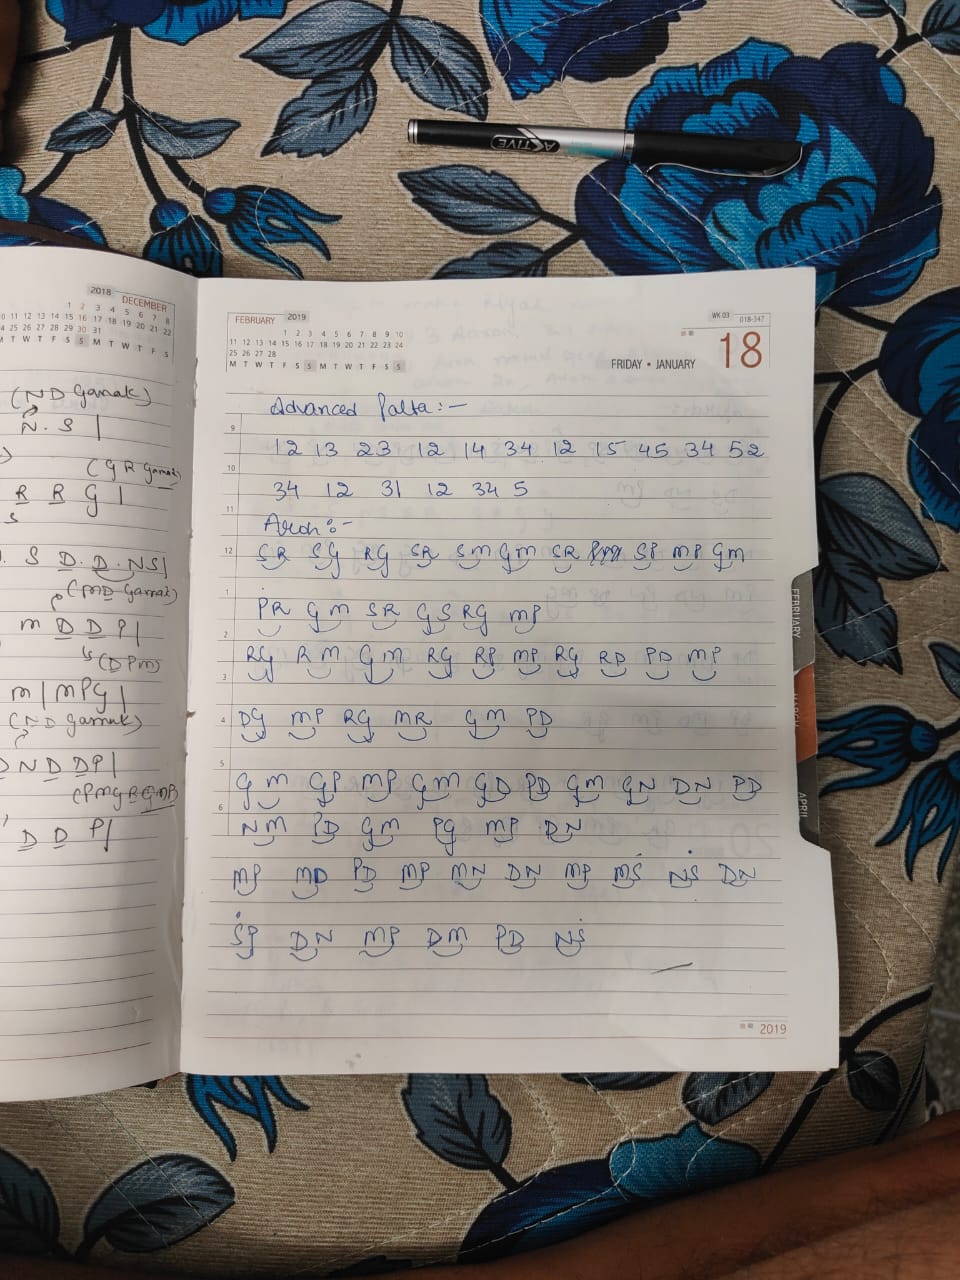 ACTIVE
2018 DECEMBER
1 2 3 4 5 6 7 8
10 11 12 13 14 15 16 17 18 19 20 21 22
24 25 26 27 28 29 30 31
M T W T F S S M T W T F S
(ND Gamak)
N. S |
(GR Gamak)
R R G |
S
. S D. D. NS|
(MD Gamak)
m D D P|
(DPm)
m | MPG |
(ND Gamak)
D N D D P|
(PMGRGMP
D D P|
FEBRUARY 2019
1 2 3 4 5 6 7 8 9 10
11 12 13 14 15 16 17 18 19 20 21 22 23 24
25 26 27 28
M T W T F S S M T W T F S S
WK 03 018-347
18
FRIDAY • JANUARY
Advanced Palta :-
9
12 13 23 12 14 34 12 15 45 34 52
10
34 12 31 12 34 5
11
Aroh :-
12 SR SG RG SR SM GM SR SP MP GM
1
PR GM SR GS RG MP
2
RG RM GM RG RP MP RG RD PD MP
3
4 DG MP RG MR GM PD
5
GM GP MP GM GD PD GM GN DN PD
6
NM PD GM PG MP DN
MP MD PD MP MN DN MP MṠ NṠ DN
ṠP DN MP DM PD NṠ
2019
FEBRUARY
MARCH
APRIL